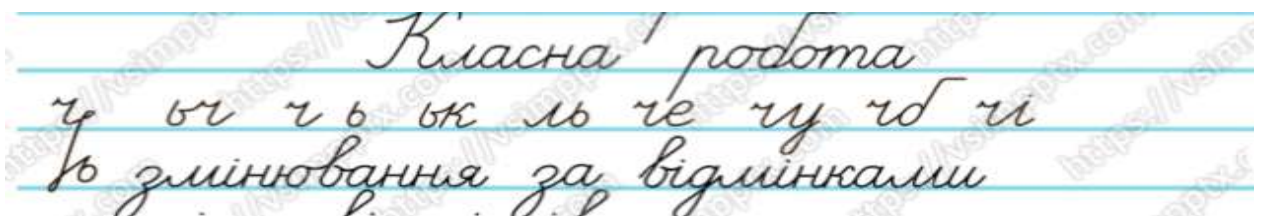 Класна робота
ч ьч ч ь ьк ль че чу чб чі
ь змінювання за відмінками